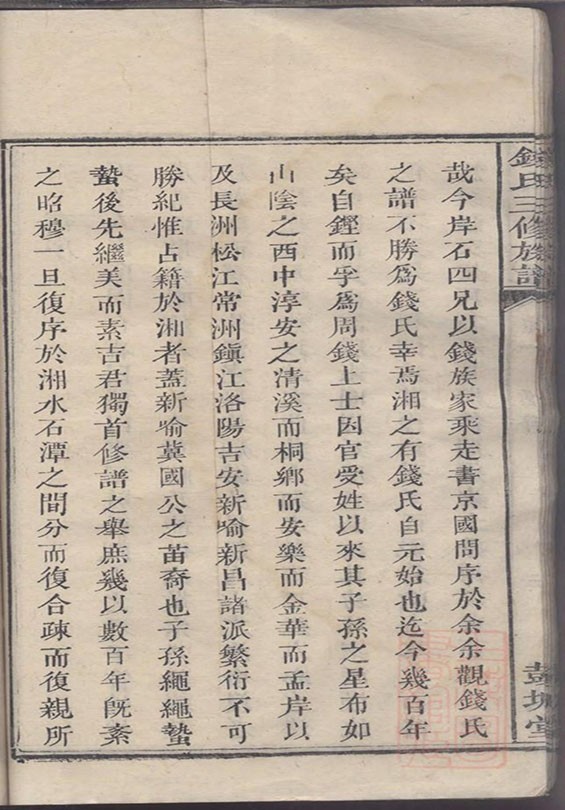 錢氏三修族譜
彭城堂
哉今岸石四兄以錢族家乘走書京國問序於余余觀錢氏
之譜不勝爲錢氏幸焉湘之有錢氏自元始也迄今幾百年
矣自鏗而孚爲周錢上士因官受姓以來其子孫之星布如
山陰之西中淳安之清溪而桐鄉而安樂而金華而孟岸以
及長洲松江常洲鎮江洛陽吉安新喻新昌諸派繁衍不可
勝紀惟占籍於湘者蓋新喻冀國公之苗裔也子孫繩繩蟄
蟄後先繼美而素吉君獨首修譜之舉庶幾以數百年旣紊
之昭穆一旦復序於湘水石潭之間分而復合疎而復親所